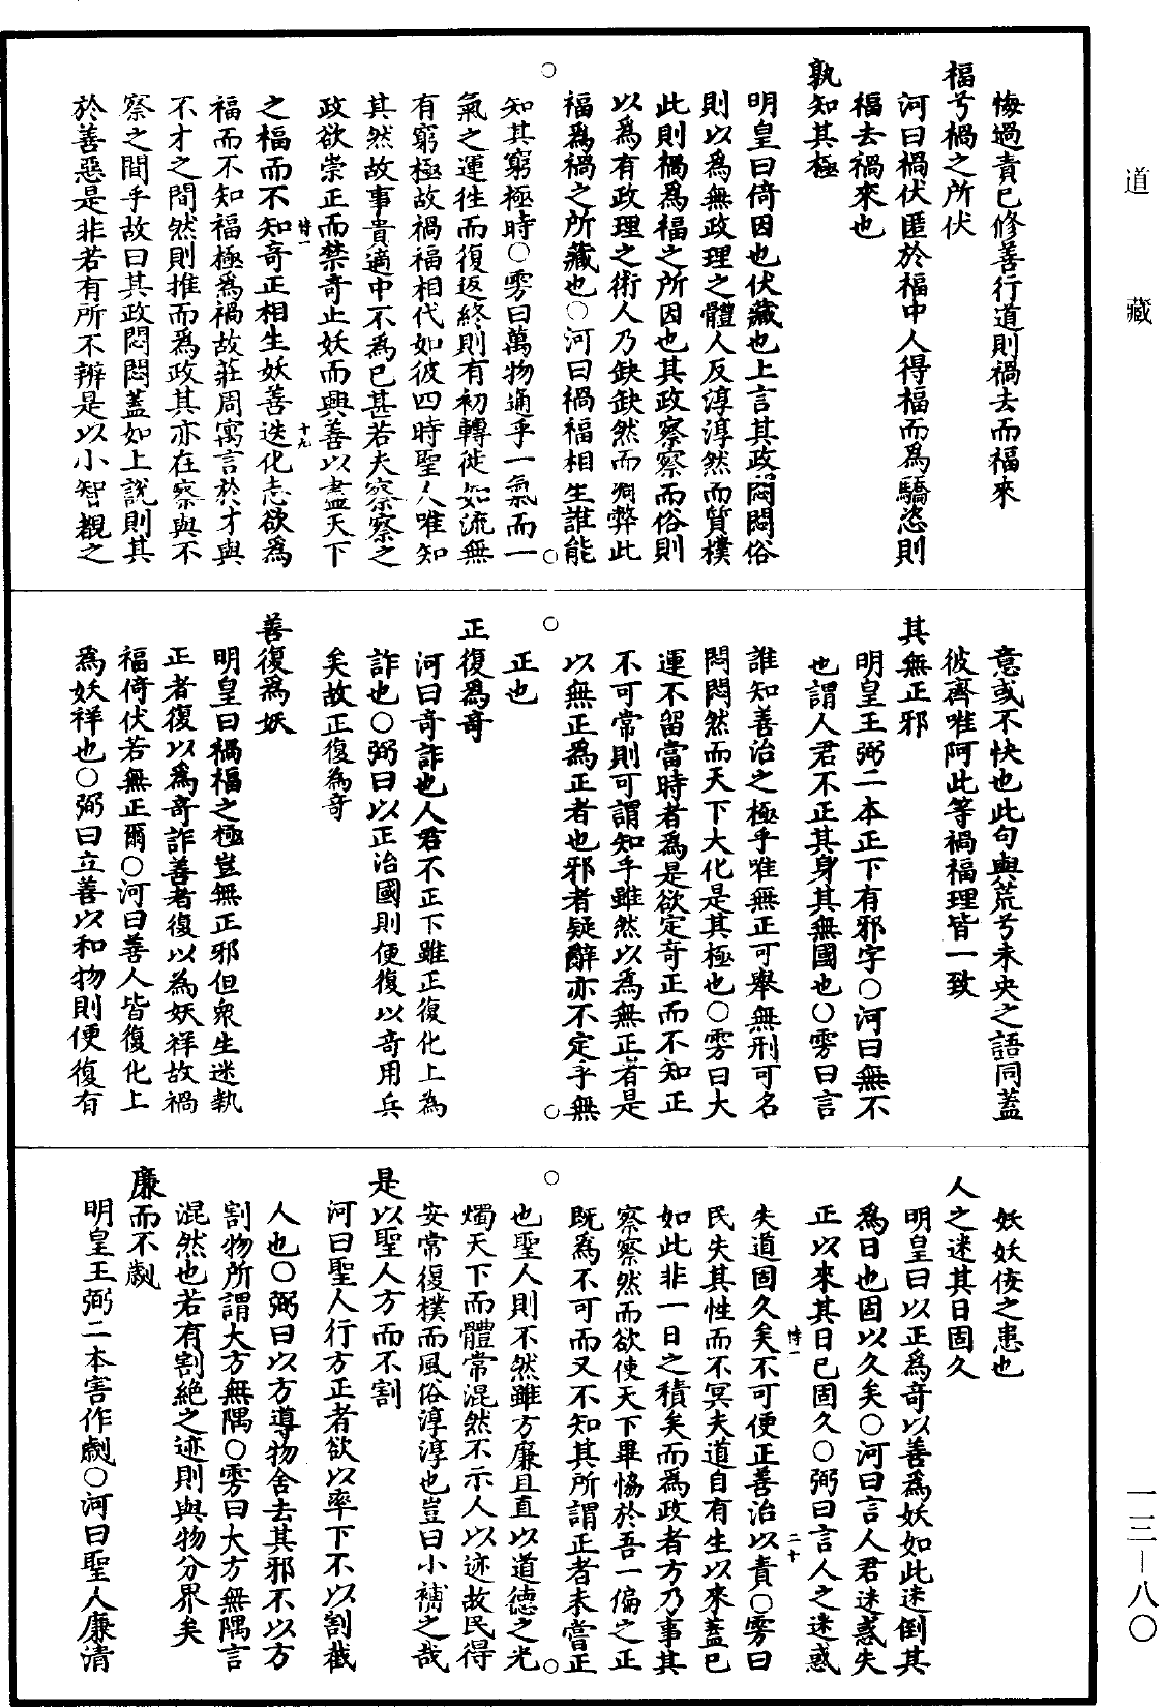 道藏
悔過責己修善行道則禍去而福來
福兮禍之所伏
河曰禍伏匿於福中人得福而為驕恣則
福去禍來也
孰知其極
明皇曰倚因也伏藏也上言其政悶悶俗
則以為無政理之體人反淳淳然而質樸
此則禍為福之所因也其政察察而俗則
以為有政理之術人乃缺缺然而凋弊此
福為禍之所藏也○河曰禍福相生誰能
知其窮極時○雱曰萬物通乎一氣而一
氣之運往而復返終則有初轉徙如流無
有窮極故禍福相代如彼四時聖人唯知
其然故事貴適中不為已甚若夫察察之
政欲崇正而禁奇止妖而興善以盡天下
之福而不知奇正相生妖善迭化志欲為
福而不知福極為禍故莊周寓言於才與
不才之間然則推而為政其亦在察與不
察之間乎故曰其政悶悶蓋如上說則其
於善惡是非若有所不辨是以小智觀之
十九
意或不快也此句與荒兮未央之語同蓋
彼齊唯阿此等禍福理皆一致
其無正邪
明皇王弼二本正下有邪字○河曰無不
也謂人君不正其身其無國也○雱曰言
誰知善治之極乎唯無正可舉無刑可名
悶悶然而天下大化是其極也○雱曰大
運不留當時者為是欲定奇正而不知正
不可常則可謂知乎雖然以為無正者是
以無正為正者也邪者疑辭亦不定乎無
正也
正復為奇
河曰奇詐也人君不正下雖正復化上為
詐也○弼曰以正治國則便復以奇用兵
矣故正復為奇
善復為妖
明皇曰禍福之極豈無正邪但眾生迷執
正者復以為奇詐善者復以為妖祥故禍
福倚伏若無正爾○河曰善人皆復化上
為妖祥也○弼曰立善以和物則便復有
妖妖佞之患也
人之迷其日固久
明皇曰以正為奇以善為妖如此迷倒其
為日也固以久矣○河曰言人君迷惑失
正以來其日已固久○弼曰言人之迷惑
失道固久矣不可便正善治以責○雱曰
民失其性而不冥夫道自有生以來蓋已
如此非一日之積矣而為政者方乃事其
察察然而欲使天下畢協於吾一偏之正
既為不可而又不知其所謂正者未嘗正
也聖人則不然雖方廉且直以道德之光
燭天下而體常混然不示人以迹故民得
安常復樸而風俗淳淳也豈曰小補之哉
是以聖人方而不割
河曰聖人行方正者欲以率下不以割截
人也○弼曰以方導物舍去其邪不以方
割物所謂大方無隅○雱曰大方無隅言
混然也若有割絕之迹則與物分界矣
廉而不劌
明皇王弼二本害作劌○河曰聖人廉清
二十
一三—八〇